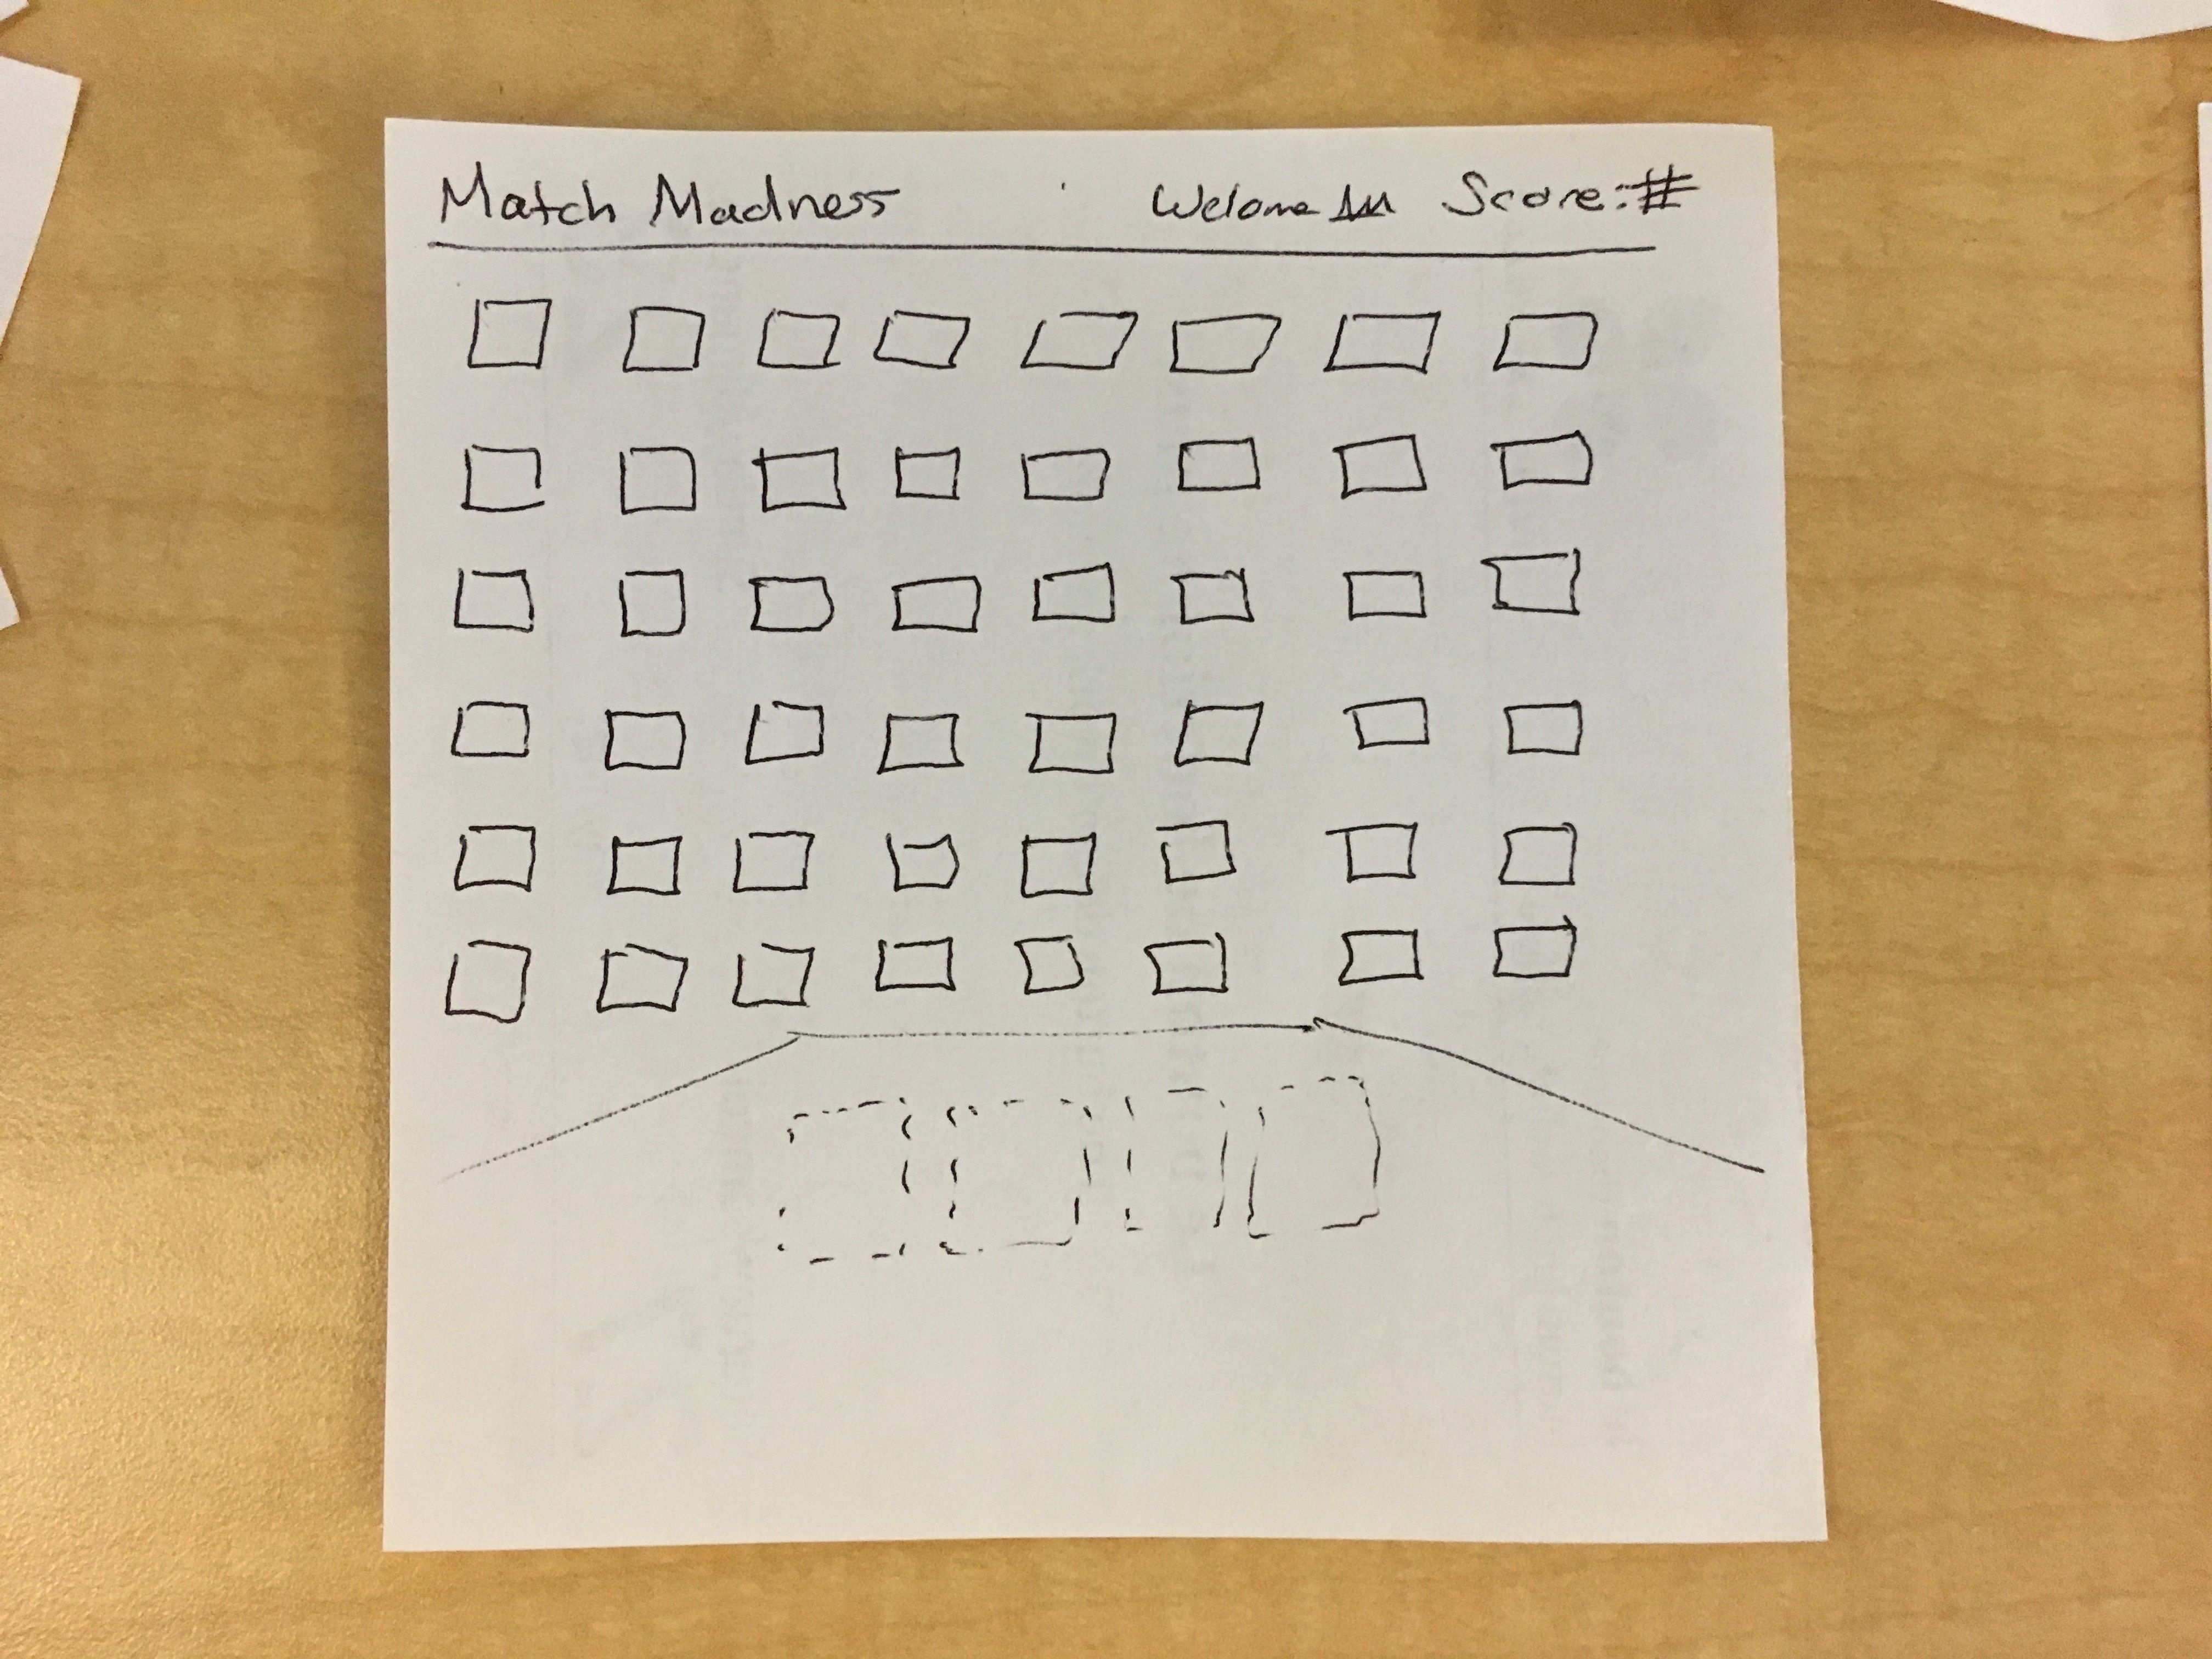 Match Madness Welome Score:#